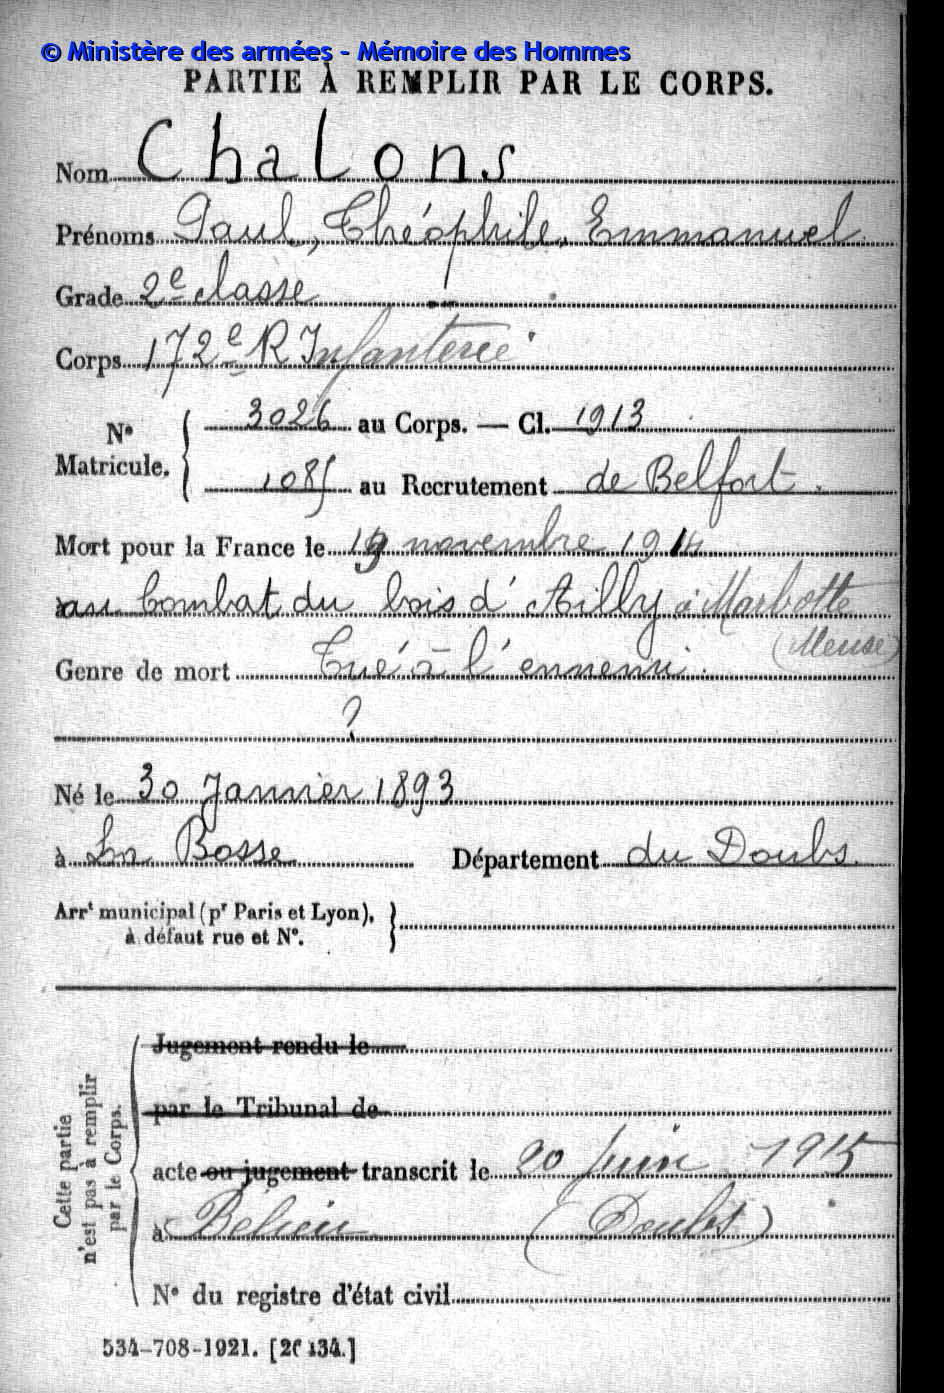 © Ministère des armées - Mémoire des Hommes
PARTIE À REMPLIR PAR LE CORPS.
Nom Chalons
Prénoms Paul, Théophile, Emmanuel
Grade 2e classe
Corps 172e R Infanterie
N° Matricule. { 3026 au Corps. — Cl. 1913
1085 au Recrutement de Belfort.
Mort pour la France le 19 novembre 1914
au combat du bois d'Ailly à Marbotte
(Meuse)
Genre de mort Tué à l'ennemi.
?
Né le 30 Janvier 1893
à La Bosse Département du Doubs.
Arrt municipal (pr Paris et Lyon),
à défaut rue et N°.
Cette partie n'est pas à remplir par le Corps.
Jugement rendu le
par le Tribunal de
acte ou jugement transcrit le 20 Juin 1915
à Bélieu (Doubs)
N° du registre d'état civil
534-708-1921. [26434.]